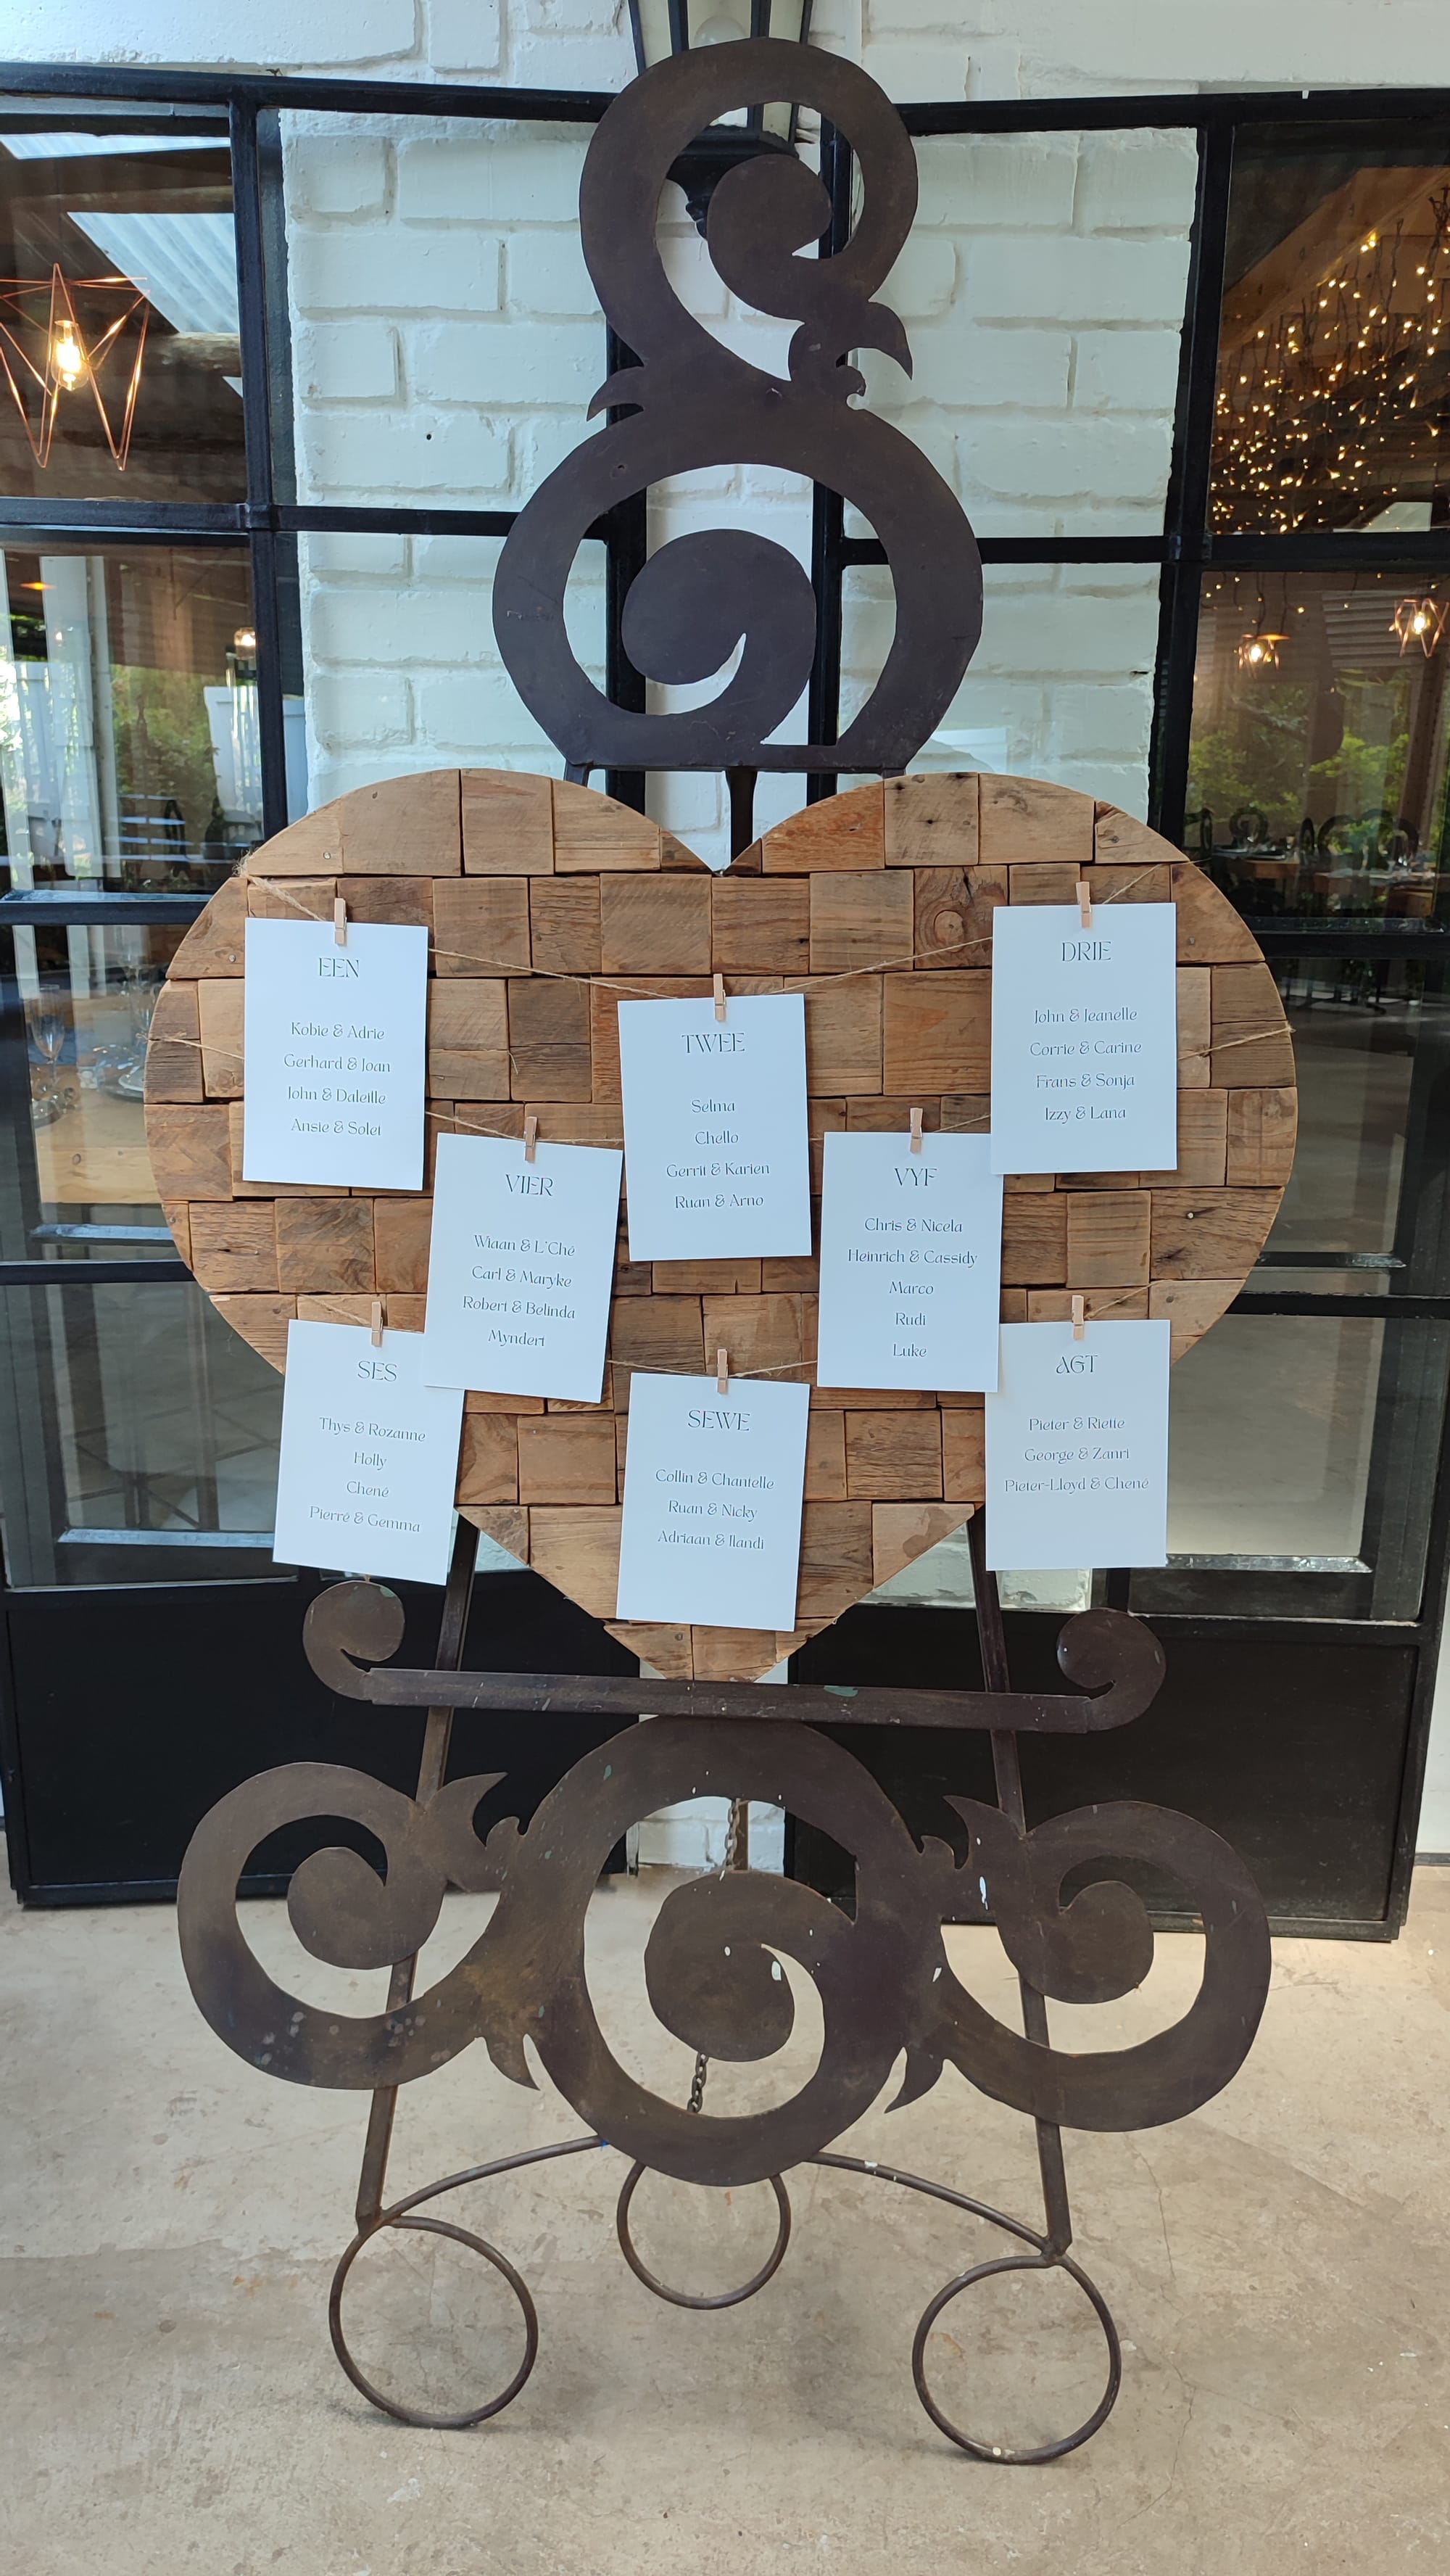 EEN
Kobie & Adrie
Gerhard & Joan
John & Daleille
Ansie & Solet
TWEE
Selma
Chello
Gerrit & Karien
Ruan & Arno
DRIE
John & Jeanelle
Corrie & Carine
Frans & Sonja
Izzy & Lana
VIER
Wiaan & L'Ché
Carl & Maryke
Robert & Belinda
Myndert
VYF
Chris & Nicela
Heinrich & Cassidy
Marco
Rudi
Luke
SES
Thys & Rozanne
Holly
Chené
Pierré & Gemma
SEWE
Collin & Chantelle
Ruan & Nicky
Adriaan & Ilandi
AGT
Pieter & Riette
George & Zanri
Pieter-Lloyd & Chené